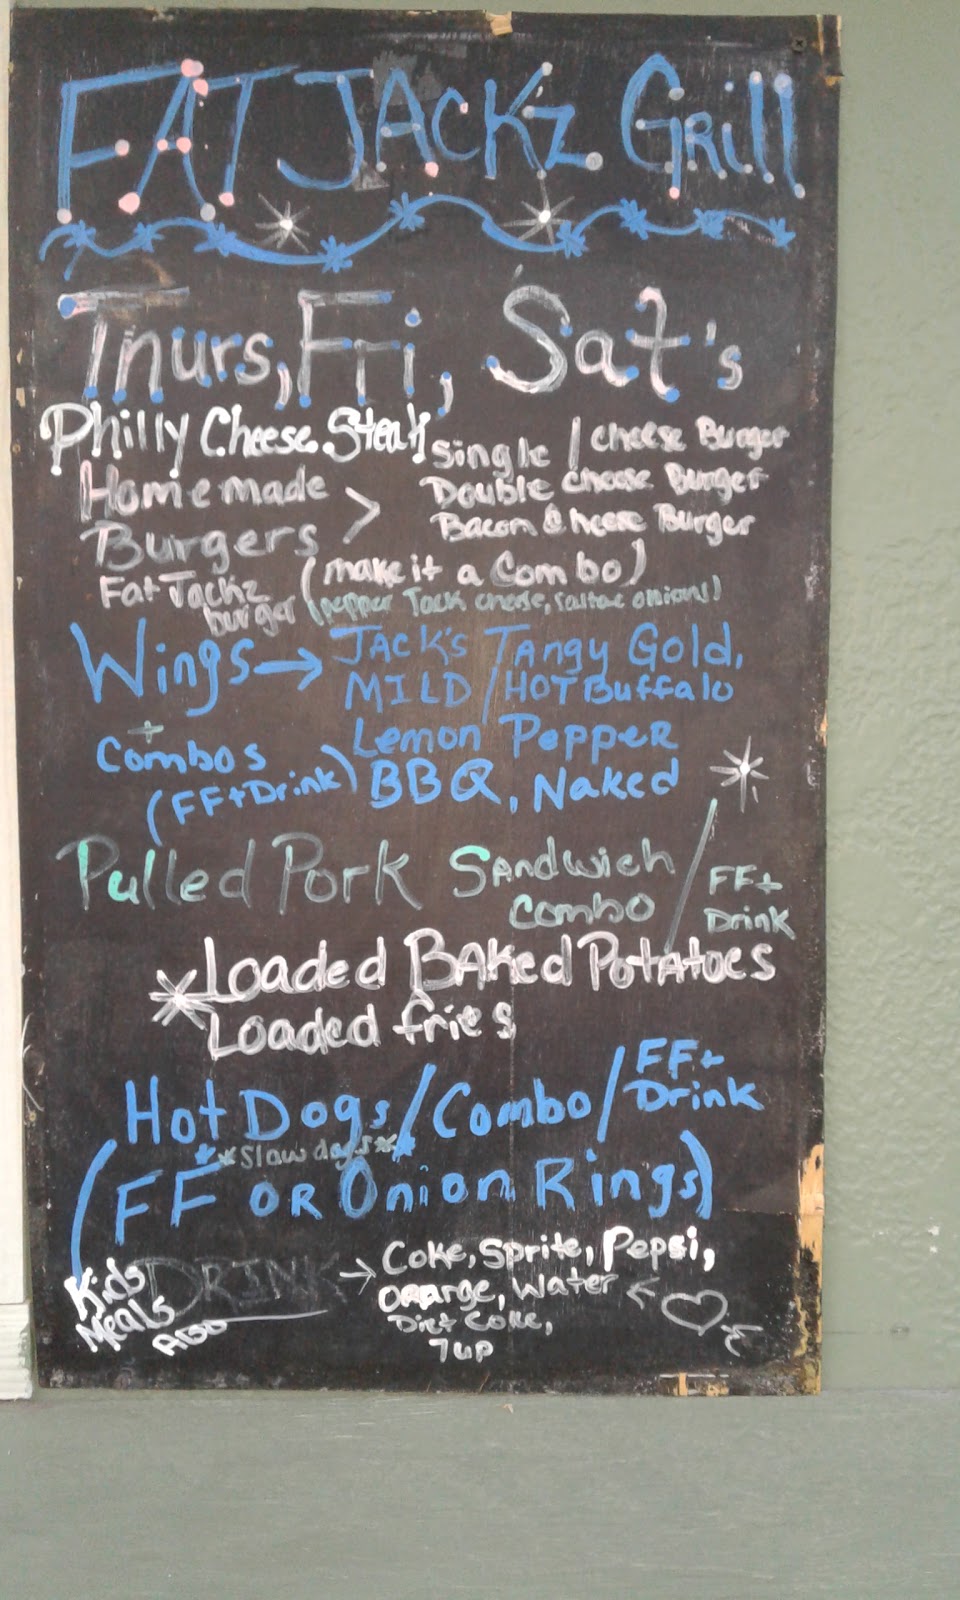 FAT JACK'z Grill
Thurs, Fri, Sat's
Philly Cheese Steak
Homemade Burgers > Single / cheese Burger
Double cheese Burger
Bacon Cheese Burger
(make it a Combo)
Fat Jackz burger (pepper Jack cheese, sautae onions)
Wings → JACK'S TANGY Gold,
MILD / HOT Buffalo
Lemon Pepper
BBQ, Naked
+ Combos
(FF + Drink)
Pulled Pork Sandwich Combo / FF + Drink
*Loaded BAKed PotAtoes
Loaded fries
Hot Dogs / Combo / FF + Drink
**Slaw dogs**
(FF OR Onion Rings)
Kids Meals ADD
DRINK → Coke, Sprite, Pepsi,
Orange, Water
Diet Coke,
7up